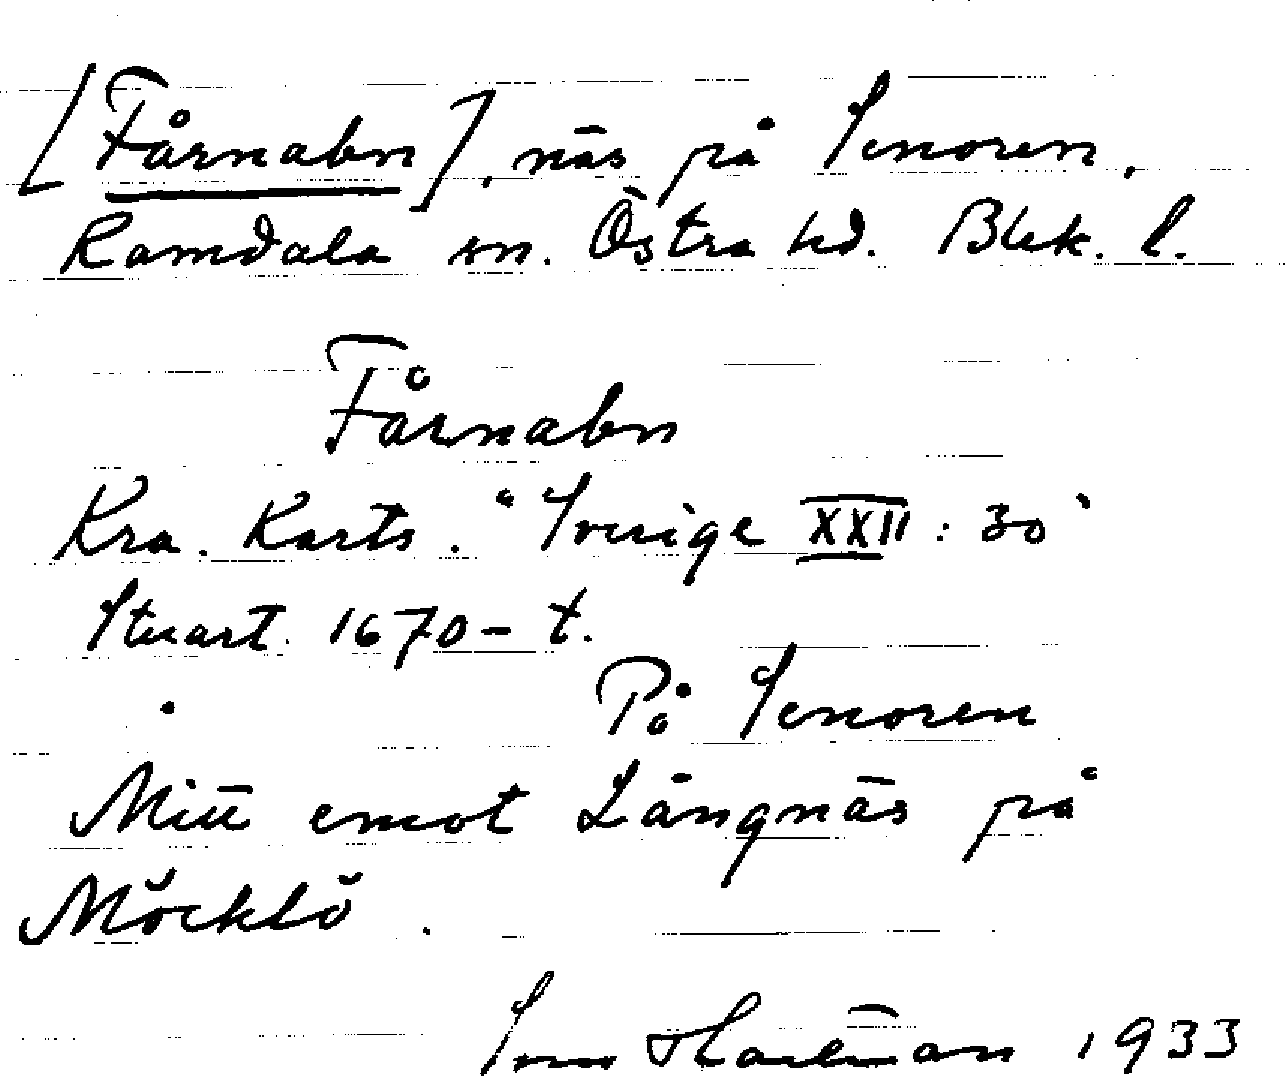 [Fårnabn], näs på Senoren,
Ramdala sn. Östra hd. Blek. l.
Fårnabn
Kra. Karts. "Sverige XXII : 30"
Stuart. 1670-t.
På Senoren
Mitt emot Långnäs på
Möcklö.
Sven Hallman 1933